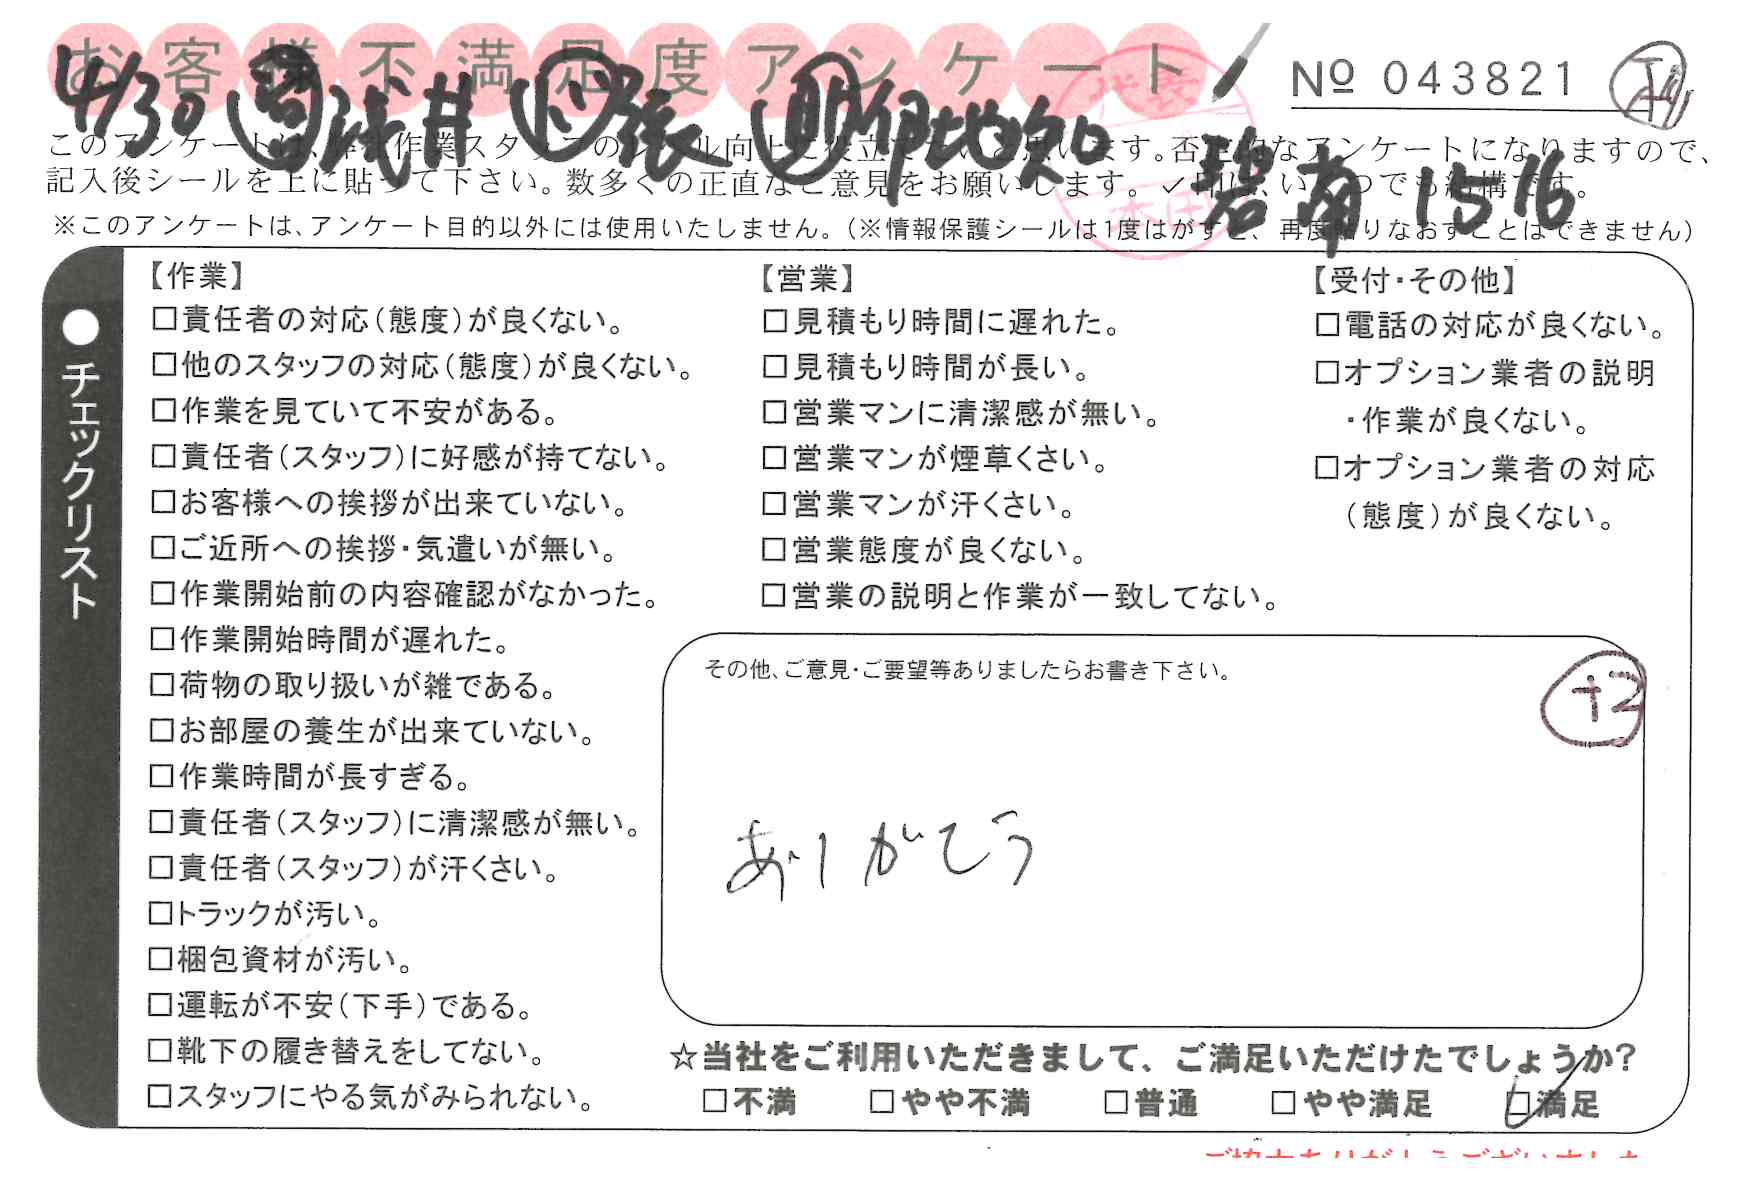 お客様不満足度アンケート
№ 043821
4/30 浅井 張 伊地知
碧南 1516
このアンケートは、弊社作業スタッフのレベル向上に役立てたいと思います。否定的なアンケートになりますので、
記入後シールを上に貼って下さい。数多くの正直なご意見をお願いします。✓印は、いくつでも結構です。
※このアンケートは、アンケート目的以外には使用いたしません。(※情報保護シールは1度はがすと、再度貼りなおすことはできません)
●チェックリスト
【作業】
□責任者の対応(態度)が良くない。
□他のスタッフの対応(態度)が良くない。
□作業を見ていて不安がある。
□責任者(スタッフ)に好感が持てない。
□お客様への挨拶が出来ていない。
□ご近所への挨拶・気遣いが無い。
□作業開始前の内容確認がなかった。
□作業開始時間が遅れた。
□荷物の取り扱いが雑である。
□お部屋の養生が出来ていない。
□作業時間が長すぎる。
□責任者(スタッフ)に清潔感が無い。
□責任者(スタッフ)が汗くさい。
□トラックが汚い。
□梱包資材が汚い。
□運転が不安(下手)である。
□靴下の履き替えをしてない。
□スタッフにやる気がみられない。
【営業】
□見積もり時間に遅れた。
□見積もり時間が長い。
□営業マンに清潔感が無い。
□営業マンが煙草くさい。
□営業マンが汗くさい。
□営業態度が良くない。
□営業の説明と作業が一致してない。
【受付・その他】
□電話の対応が良くない。
□オプション業者の説明
・作業が良くない。
□オプション業者の対応
(態度)が良くない。
その他、ご意見・ご要望等ありましたらお書き下さい。
+2
ありがとう
☆当社をご利用いただきまして、ご満足いただけたでしょうか?
□不満 □やや不満 □普通 □やや満足 ☑満足
ご協力ありがとうございました